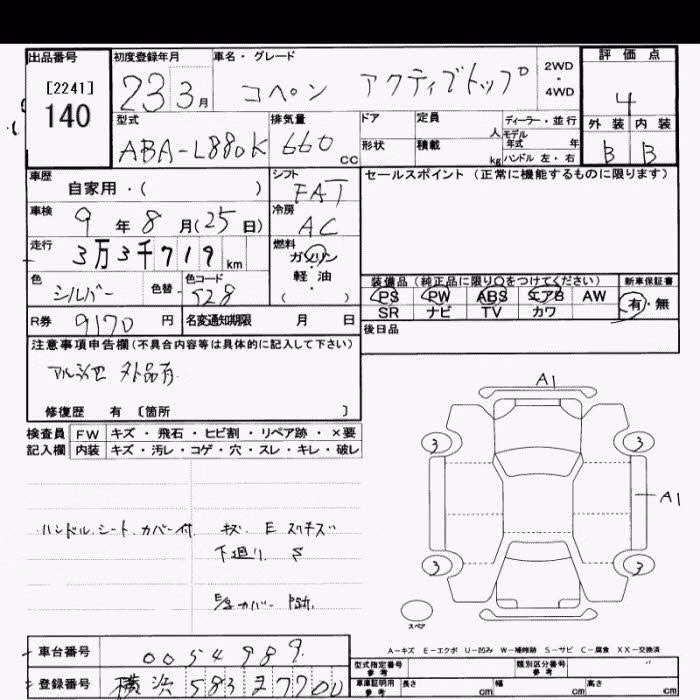 出品番号
[2241]
140
初度登録年月
23 3月
車名・グレード
コペン アクティブトップ
2WD
・
4WD
評価点
4
型式
ABA-L880K
排気量
660 CC
ドア
定員
人
ディーラー・並行
モデル年式 年
形状
積載
kg
ハンドル 左・右
外装 内装
B B
車歴
自家用・( )
シフト
FAT
セールスポイント (正常に機能するものに限ります)
車検
9年8月(25日)
冷房
AC
走行
3万3千719km
燃料
ガソリン
軽・油
( ・ )
色
シルバー
色替
色コード
S28
装備品 (純正品に限り○をつけてください)
新車保証書
PS PW ABS エアB AW
SR ナビ TV カワ
有・無
R券
9170円
名変通知期限 月 日
後日品
注意事項申告欄(不具合内容等は具体的に記入して下さい)
外品有
修復歴 有 [箇所 ]
検査員
記入欄
FW キズ・飛石・ヒビ割・リペア跡・×要
内装 キズ・汚レ・コゲ・穴・スレ・キレ・破レ
ハンドル.シート.カバー付
キズ E
下廻り S
カバー
A1
3 3
A1
3 3
スペア
A-キズ E-エクボ U-凹み W-補修跡 S-サビ C-腐食 XX-交換済
車台番号
0054989
登録番号
横浜 583
型式指定番号
参考
類別区分番号
参考
車庫証明用
参考
長さ cm
幅 cm
高さ cm